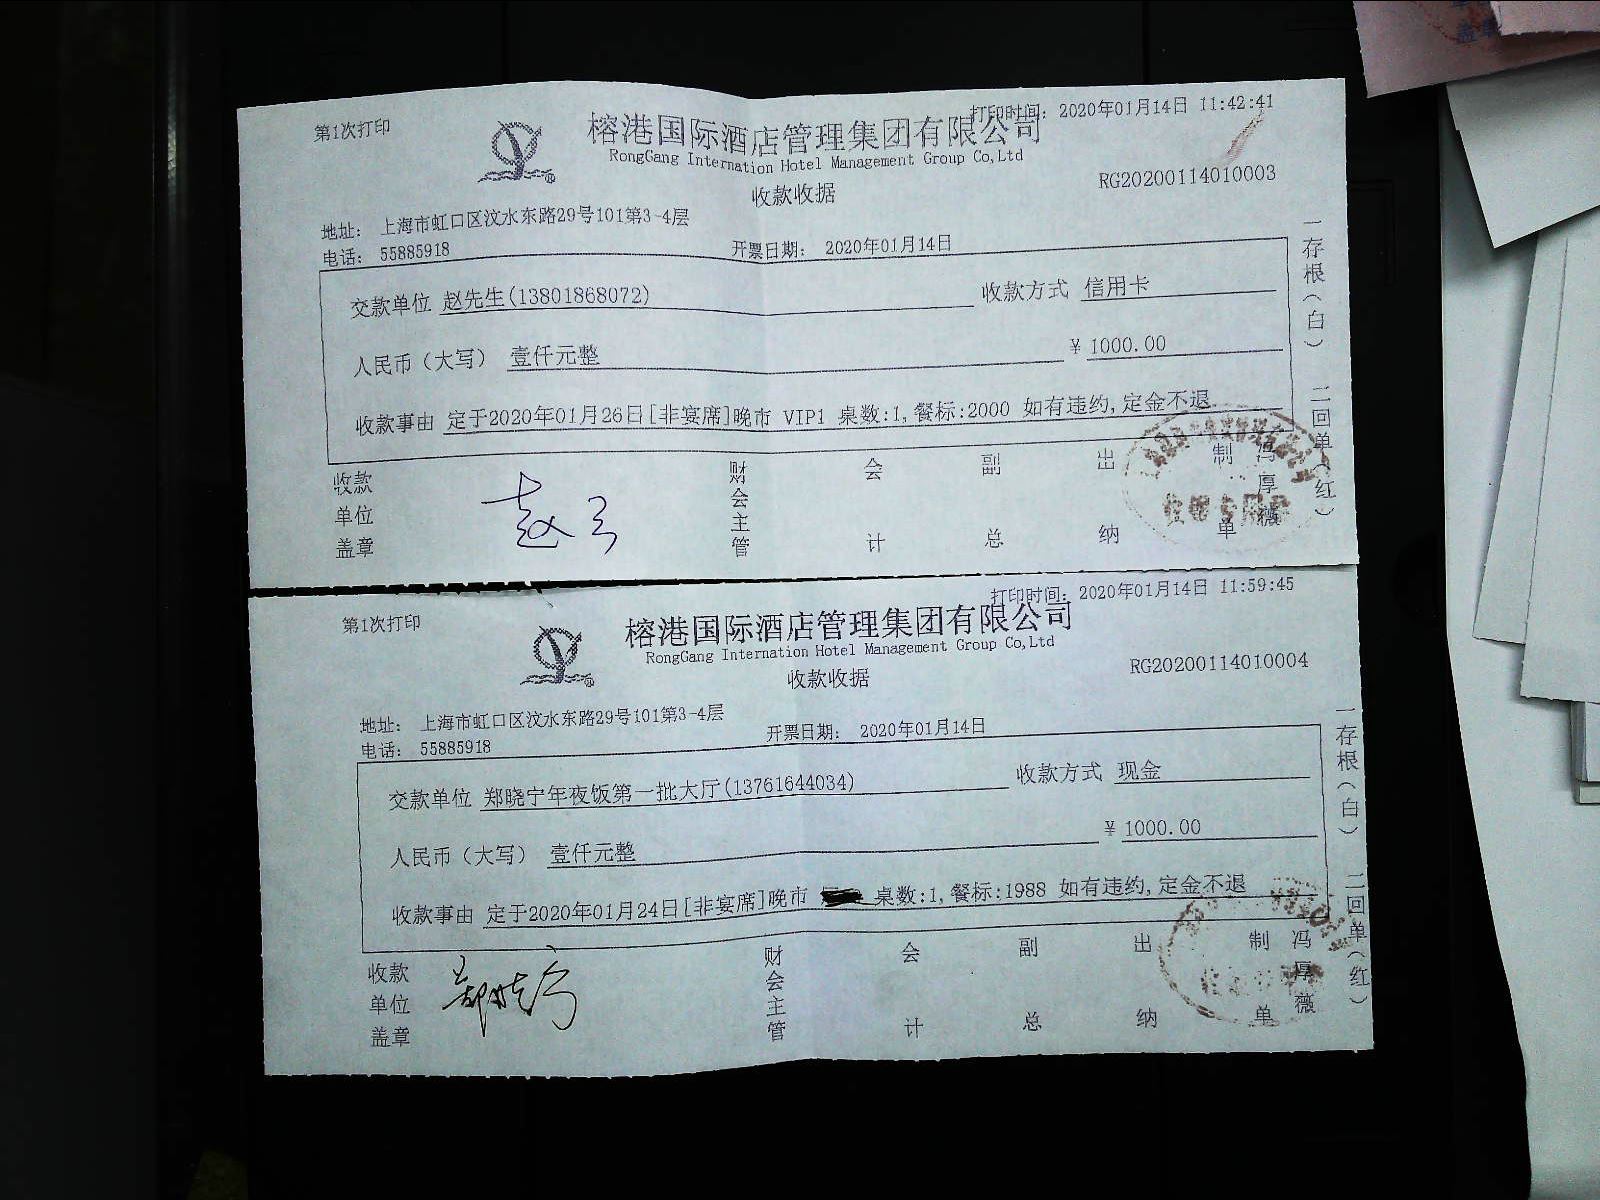 第1次打印
打印时间: 2020年01月14日 11:42:41
榕港国际酒店管理集团有限公司
RongGang Internation Hotel Management Group Co,Ltd
收款收据
RG20200114010003
地址: 上海市虹口区汶水东路29号101第3-4层
电话: 55885918
开票日期: 2020年01月14日
交款单位 赵先生(13801868072)
收款方式 信用卡
人民币(大写) 壹仟元整
¥ 1000.00
收款事由 定于2020年01月26日[非宴席]晚市 VIP1 桌数:1,餐标:2000 如有违约,定金不退
一存根(白) 二回单(红)
收款单位盖章
财会主管
会计
副总
出纳
制单
冯厚薇
第1次打印
打印时间: 2020年01月14日 11:59:45
榕港国际酒店管理集团有限公司
RongGang Internation Hotel Management Group Co,Ltd
收款收据
RG20200114010004
地址: 上海市虹口区汶水东路29号101第3-4层
电话: 55885918
开票日期: 2020年01月14日
交款单位 郑晓宁年夜饭第一批大厅(13761644034)
收款方式 现金
人民币(大写) 壹仟元整
¥ 1000.00
收款事由 定于2020年01月24日[非宴席]晚市 桌数:1,餐标:1988 如有违约,定金不退
一存根(白) 二回单(红)
收款单位盖章
郑晓宁
财会主管
会计
副总
出纳
制单
冯厚薇